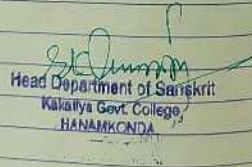 Head Department of Sanskrit
Kakatiya Govt. College,
HANAMKONDA